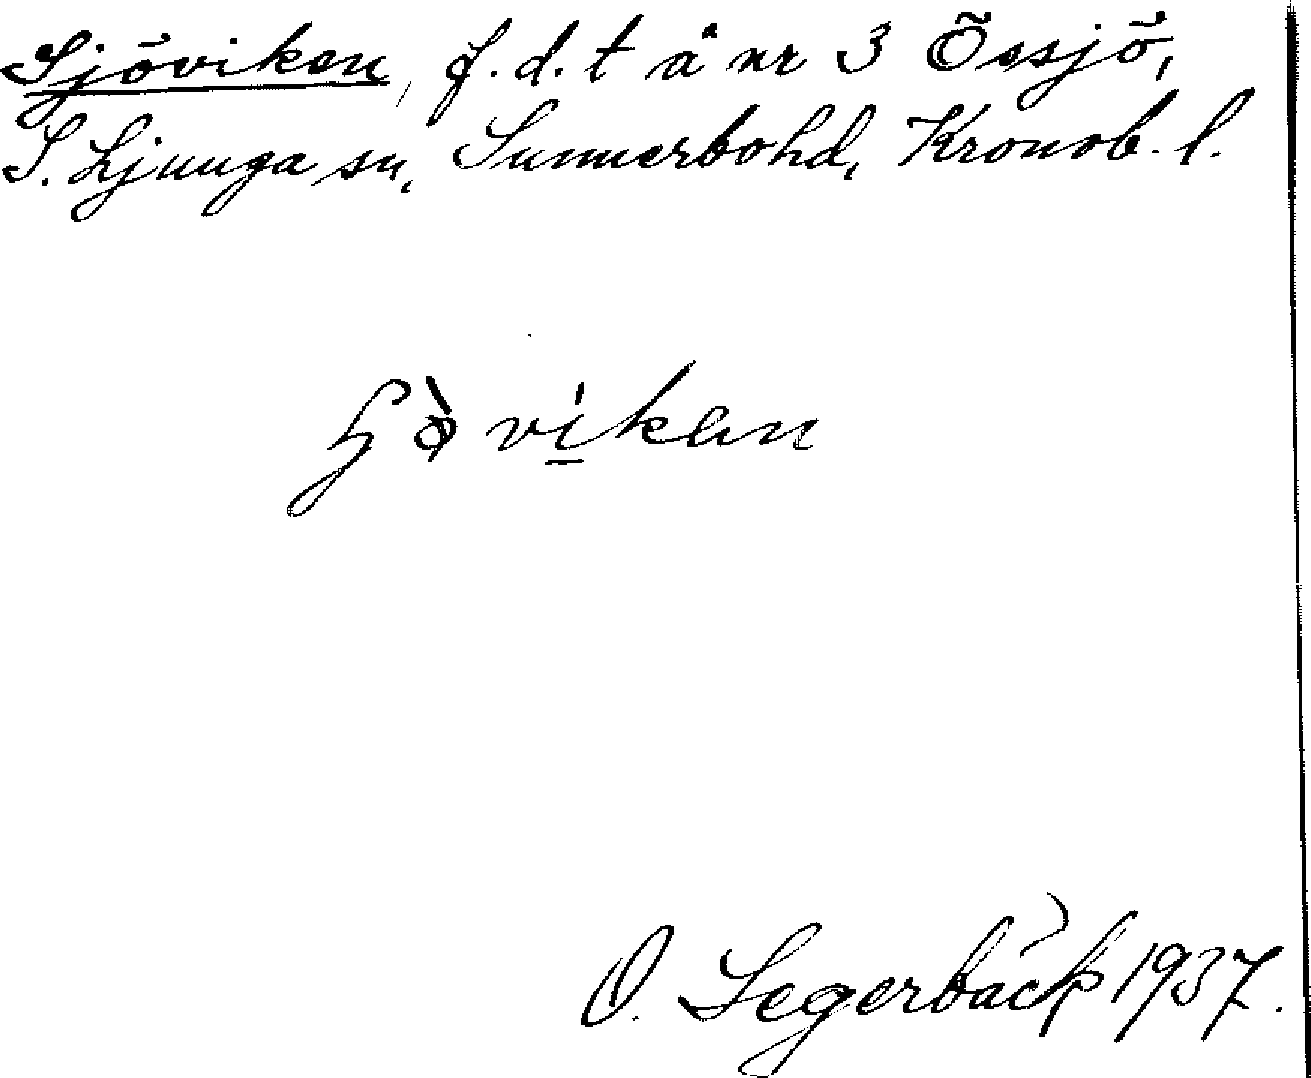 Sjöviken, f.d.t å nr 3 Össjö,
S. Ljunga sn, Sunnerbo hd, Kronob. l.
O. Segerbäck 1937.